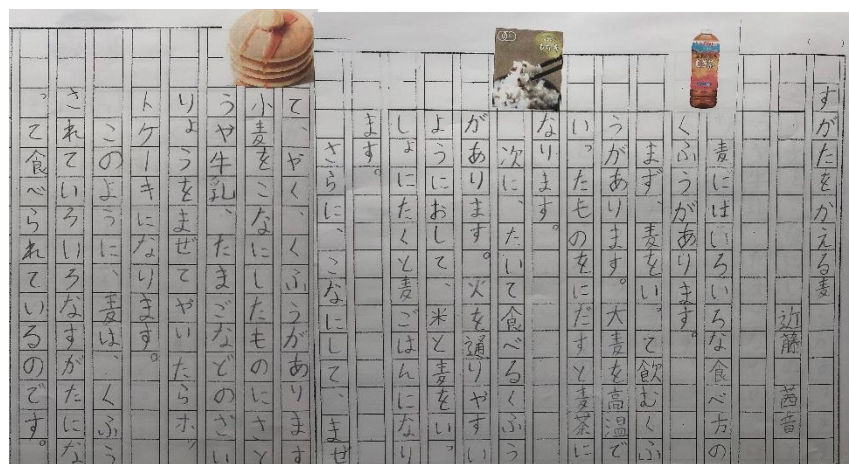 すがたをかえる麦
近藤 茜音
麦にはいろいろな食べ方の
くふうがあります。
まず、麦をい。て飲むくふ
うがあります。大麦を高温で
い、たものをにだすと麦茶に
なります。
次に、たいて食べるくふう
があります。火を通りやすい
ようにおして、米と麦をいっ
しょにたくと麦ごはんになり
ます。
さらに、こなにして、まぜ
て、やく、くふうがあります
小麦をこなにしたものにさと
うや牛乳、たまごなどのざい
りょうをまぜてやいたらホッ
トケーキになります。
このように、麦は、くふう
されていろいろなすがたにな
って食べられているのです。